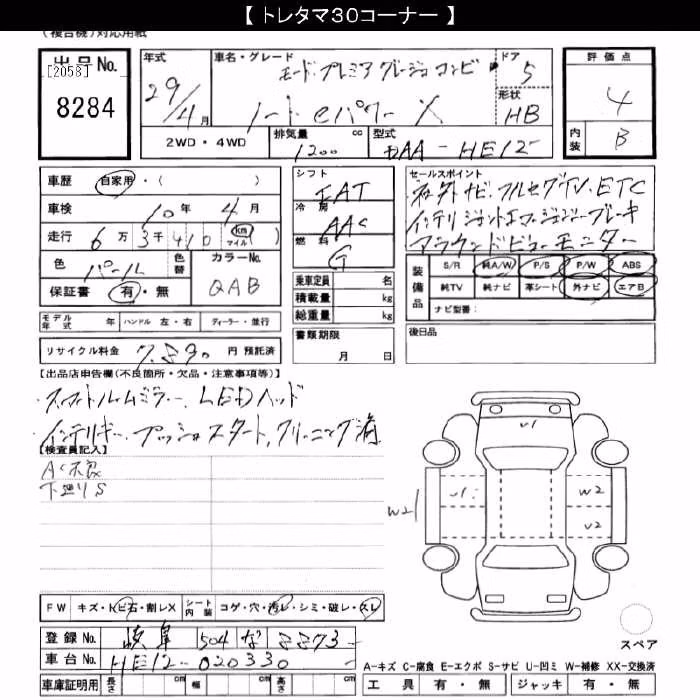 【 トレタマ30コーナー 】
(複合機)対応用紙
出品No.
[2058]
8284
年式
29/4月
車名・グレード
モード・プレミア グレージュコンビ
ノート eパワー X
ドア
5
形状
HB
評価点
4
内装
B
2WD・4WD
排気量 cc
1200
型式
DAA-HE12
車歴 自家用・( )
車検 10年 4月
走行 6万3千410 (km マイル)( )
色 パール 色替
カラーNo.
QAB
保証書 有・無
シフト
IAT
冷房
AAC
燃料
G
乗車定員 名
積載量 kg
総重量 kg
書類期限
月 日
セールスポイント
社外ナビ.フルセグTV.ETC
インテリジェントエマージェンシーブレーキ
アラウンドビューモニター
装備品
S/R 純A/W P/S P/W ABS
純TV 純ナビ 革シート 外ナビ エアB
ナビ型番:
モデル年式 年 ハンドル 左・右 ディーラー・並行
後日品
リサイクル料金 7890 円 預託済
【出品店申告欄(不良箇所・欠品・注意事項等)】
・スマートルームミラー、LEDヘッド
・インテリキー、プッシュスタート,クリーニング済
【検査員記入】
AC不良
下廻りS
U1
W2
U1
W2
U2
FW キズ・トビ石・割レX シート内装 コゲ・穴・汚レ・シミ・破レ・スレ
登録No. 岐阜 504 な 8873
車台No. HE12-020330
車庫証明用 長さ cm 幅 cm 高さ cm
スペア
A-キズ C-腐食 E-エクボ S-サビ U-凹ミ W-補修 XX-交換済
工具 有・無 ジャッキ 有・無